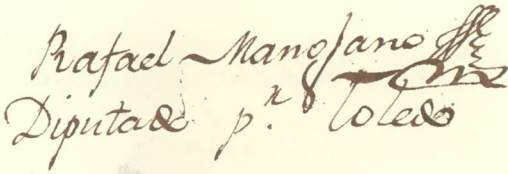 Rafael Manzano
Diputado pʳ. Toledo